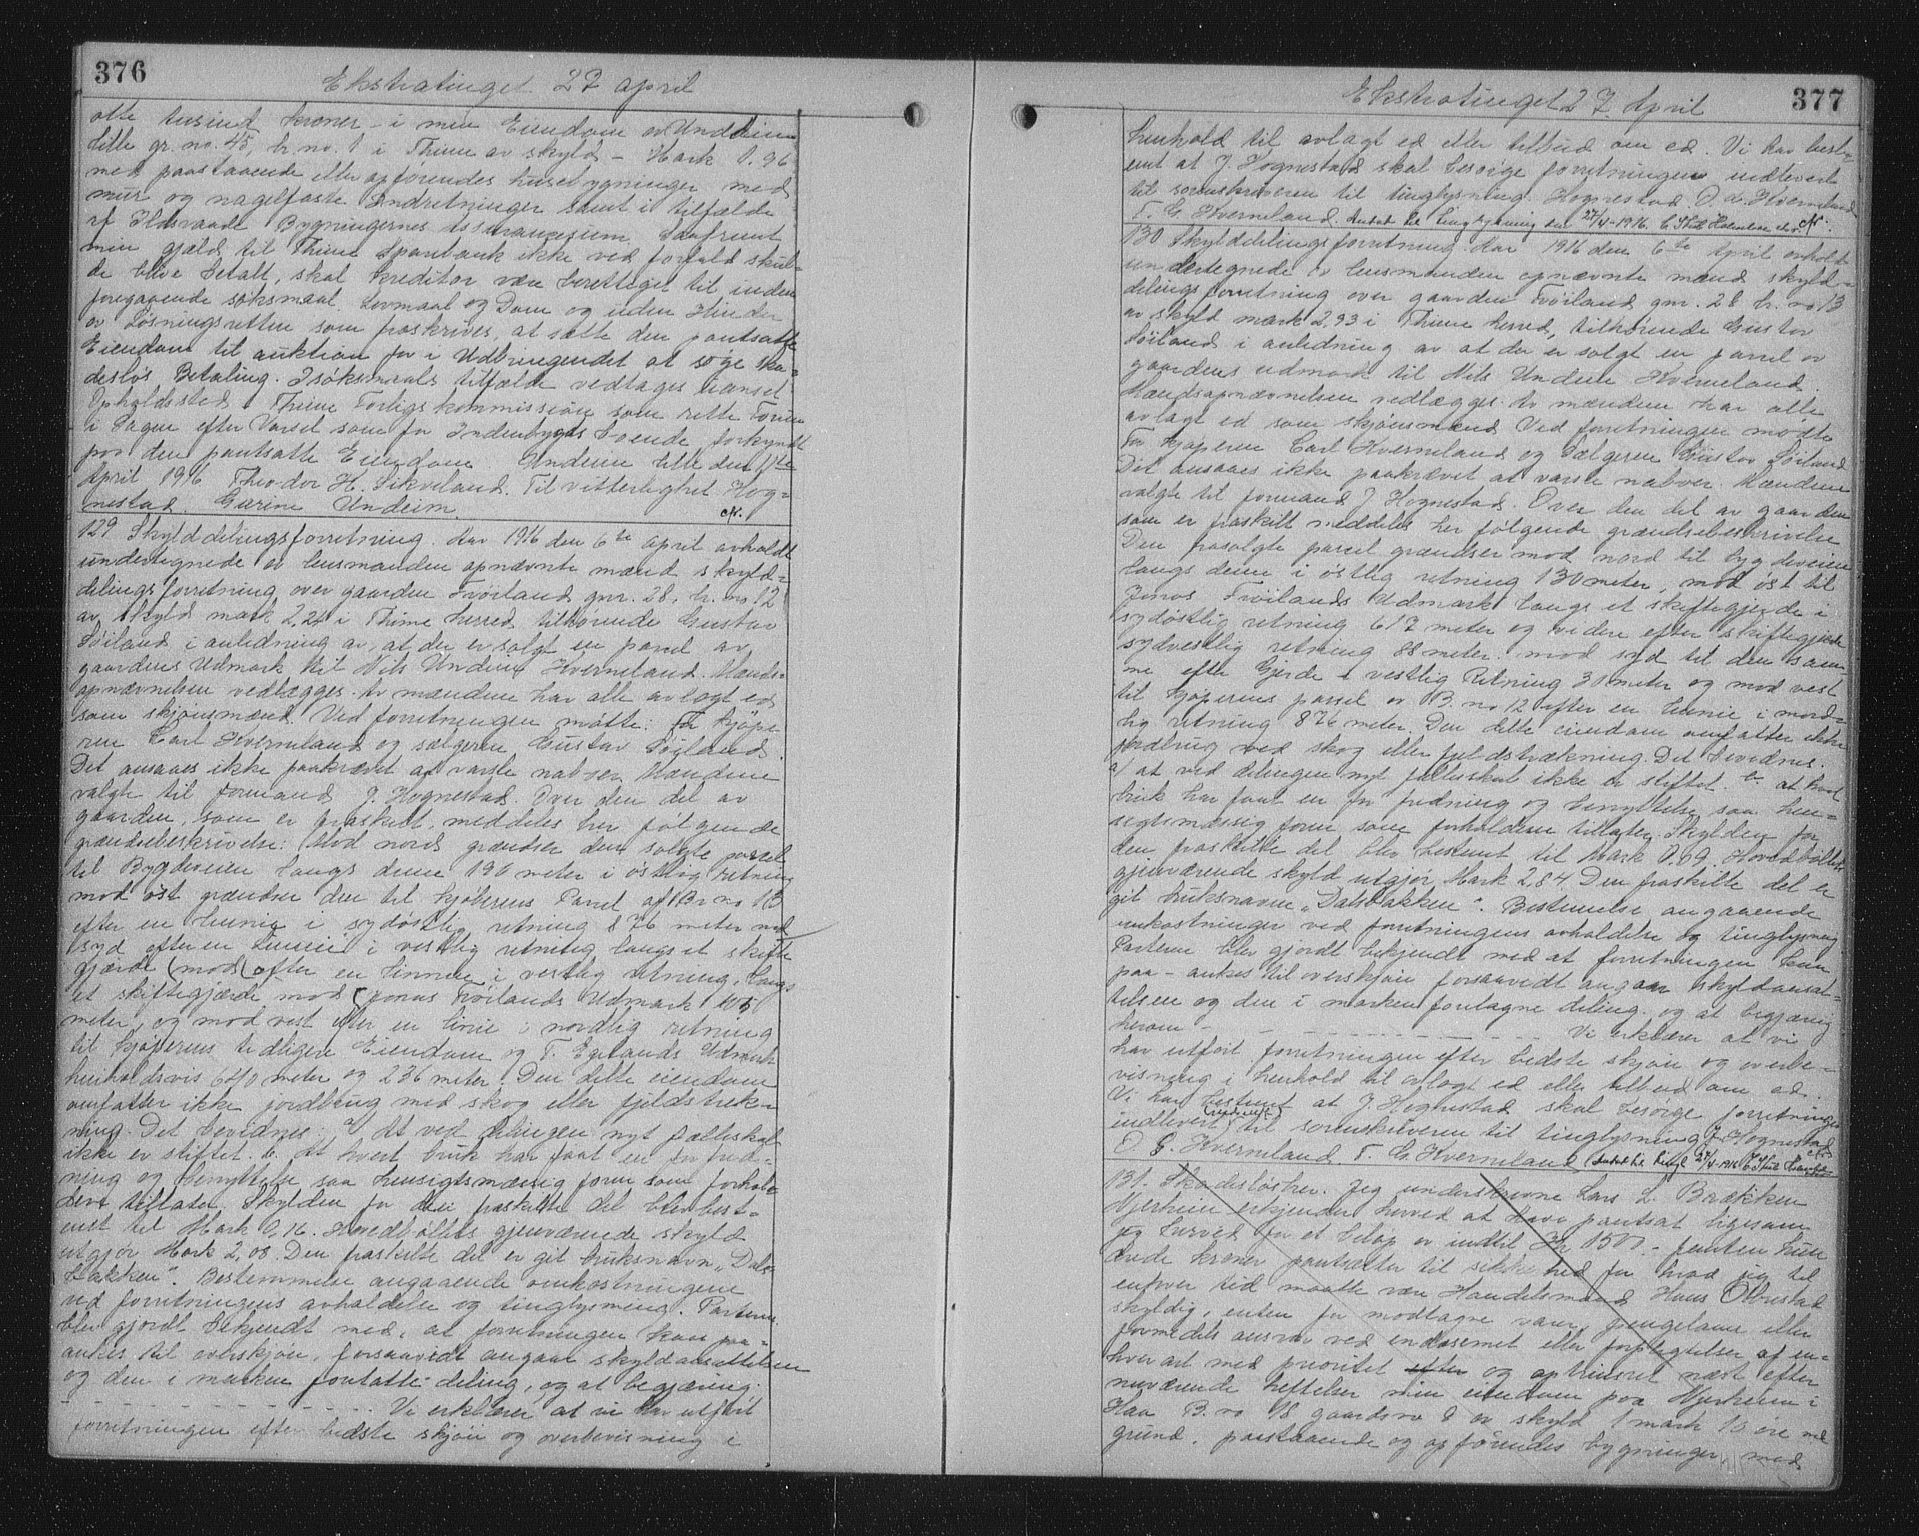 376
Ekstratinget 27 april
otte tusind kroner - i min Eiendom av Undheim
lille gr. no. 45, br. no. 1 i Thime av skyld - Mark 0.96
med paastaaende eller opførendes husebygninger med
mur og nagelfaste Indretninger samt i tilfælde
af Ildsvaade Bygningernes assurancesum. Saafremt
min gjæld til Thime Sparebank ikke ved forfald skul-
de blive betalt, skal kreditor være berettiget til uden
foregaaende søksmaal. Lovmaal og Dom og uden Hinder
av Løsningsretten som fraskrives, at sætte den pantsatte
Eiendom til auktion for i Udbringendet at søge ska-
desløs Betaling. I søksmaals tilfælde vedtages uanset
Opholdssted Thime Forligskommission som rette Forum
i Sagen efter Varsel som for Indenbygds Boende forkyndt
paa den pantsatte Eiendom. Undheim lille den 11te
April 1916 Theodor H. Sikveland. Til vitterlighet Hog-
nestad. Gurine Undeim.
129 Skylddelingsforretning. Aar 1916 den 6te april avholdt
undertegnede av lensmanden opnævnte mænd skyld-
delingsforretning over gaarden Frøiland gnr. 28, br. no 12
av skyld mark 2,24 i Thime herred, tilhørende Gustav
Føiland i anledning av, at der er solgt en parcel av
gaardens Udmark til Nils Undeim Kverneland. Mands-
opnævnelsen vedlægges. Av mændene har alle avlagt ed
som skjønsmænd. Ved forretningen møtte: For kjøpe-
ren Carl Kverneland og sælgeren Gustav Føiland.
Det ansaaes ikke paakrævet at varsle naboer. Mændene
valgte til formand J. Hognestad. Over den del av
gaarden, som er fraskilt, meddeles her følgende
grændsebeskrivelse: Mod nord grændser den solgte parcel
til Bygdeveien langs denne 196 meter i østlig retning
mod øst grændser den til kjøberens Parcel af Br. no 13
efter en linnie i sydøstlig retning 876 meter mod
syd efter en Linnie i vestlig retning langs et skifte
gjærde (mod) efter en linnie i vestlig retning, langs
et skiftegjærde mod Jonas Frøilands Udmark 105
meter, og mod vest efter en linie i nordlig retning
til kjøperens tidligere Eiendom og T. Egelands Udmark
henholdsvis 640 meter og 236 meter. Den dette eiendom
omfatter ikke jordbrug med skog eller fjeldstræk-
ning. Det bevidnes: a. At ved delingen nyt fælleskab
ikke er stiftet. b. At hvert bruk har faat en for fred-
ning og benyttelse saa hensigtsmæssig form som forhol-
dene tillater. Skylden for den fraskilte del blev best-
emt til Mark 0,16. Hovedbøllets gjenværende skyld
utgjør Mark 2,08. Den fraskilte del er git bruksnavn "Dals-
bakken". Bestemmelse angaaende omkostningene
ved forretningens avholdelse og tinglysning. Parterne
blev gjordt bekjendt med, at forretningen kan paa-
ankes til overskjøn, forsaavidt angaar skyldansættelsen
og den i marken foretatte deling, og at begjæring
- - - - - - - - - - - Vi erklærer at vi har utført
forretningen efter bedste skjøn og overbevisning i
377
Ekstratinget 27 April
henhold til avlagt ed eller tilbud om ed. Vi har best-
emt at J. Hognestad skal besørge forretningen indlevert
til sorenskriveren til tinglysning. Hognestad. O. G. Kverneland
T. G. Kverneland. Antat til Tinglysning den 27/4-1916.
130 Skylddelingsforretning. Aar 1916 den 6te April avholdt
undertegnede av lensmanden opnævnte mænd skyld-
delingsforretning over gaarden Frøiland gnr. 28 br. no 13
av skyld mark 2,93 i Thime herred, tilhørende Gustav
Føiland i anledning av at der er solgt en parcel av
gaardens udmark til Nils Undeim Kverneland.
Mandsopnævnelsen vedlægges. Av mændene har alle
avlagt ed som skjønsmænd. Ved forretningen møtte
For kjøperen Carl Kverneland og Sælgeren Gustav Føiland
Det ansaaes ikke paakrævet at varsle naboer. Mændene
valgte til formand J. Hognestad. Over den del av gaarden
som er fraskilt meddeles her følgende grændsebeskrivelse
Den frasolgte parcel grændser mod nord til bygdeveien
langs denne i østlig retning 130 meter, mod øst til
Jonas Frøilands Udmark langs et skiftegjerde i
sydøstlig retning 617 meter og videre efter skiftegjerde
sydvestlig retning 88 meter. mod syd til den sam-
me efter Gjerde i vestlig Retning 30 meter og mod vest
til kjøperens parsel av B. no 12 efter en linnie i nord-
lig retning 876 meter. Den dette eiendom omfatter ikke
jordbrug med skog eller fjeldstrækning. Det bevidnes.
a/ at ved delingen nyt fælleskab ikke er stiftet. b. at hvert
bruk har faat en for fredning og benyttelse saa hen-
sigtsmæssig form som forholdene tillater. Skylden for
den fraskilte del blev bestemt til Mark 0.09. Hovedbøllets
gjenværende skyld utgjør Mark 2,84. Den fraskilte del er
git bruksnavn "Dalsbakken". Bestemmelse angaaende
omkostninger ved forretningens avholdelse og tinglysning
Parterne blev gjordt bekjendt med at forretningen kan
paa-ankes til overskjøn forsaavidt angaar skyldansæt-
telsen og den i marken foretagne deling. og at begjæring
herom - - - - - - - - - - Vi erklærer at vi
har utført forretningen efter bedste skjøn og overbe-
visning i henhold til avlagt ed eller tilbud om ed.
Vi har bestemt at J. Hognestad skal besørge forretningen
indlevert til sorenskriveren til tinglysning J. Hognestad
O. G. Kverneland. T. G. Kverneland. Antat til tingl. 27/4-1916
131. Skadesløsbr. Jeg underskrevne Lars L. Brækken
Hjerheim erkjender herved at have pantsat ligesom
jeg herved for et beløb av indtil Kr 1500,- femten hun
drede kroner pantsætter til sikkerhed for hvad jeg til
enhver tid maatte være Handelsmand Hans Obrestad
skyldig, enten for modtagne varer, pengelaane eller
formedels ansvar ved endosement eller forpligtelser af en-
hver art med prioritet efter og optrinsret næst efter
nuværende heftelser min eiendom paa Hjerheim i
Haa B. no 18 gaardsno 8 av skyld 1 mark 10 øre med
grund, paastaaende og opførendes bygninger, med